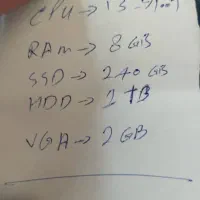 CPU → i5
RAM → 8 GB
SSD → 240 GB
HDD → 1 TB
VGA → 2 GB